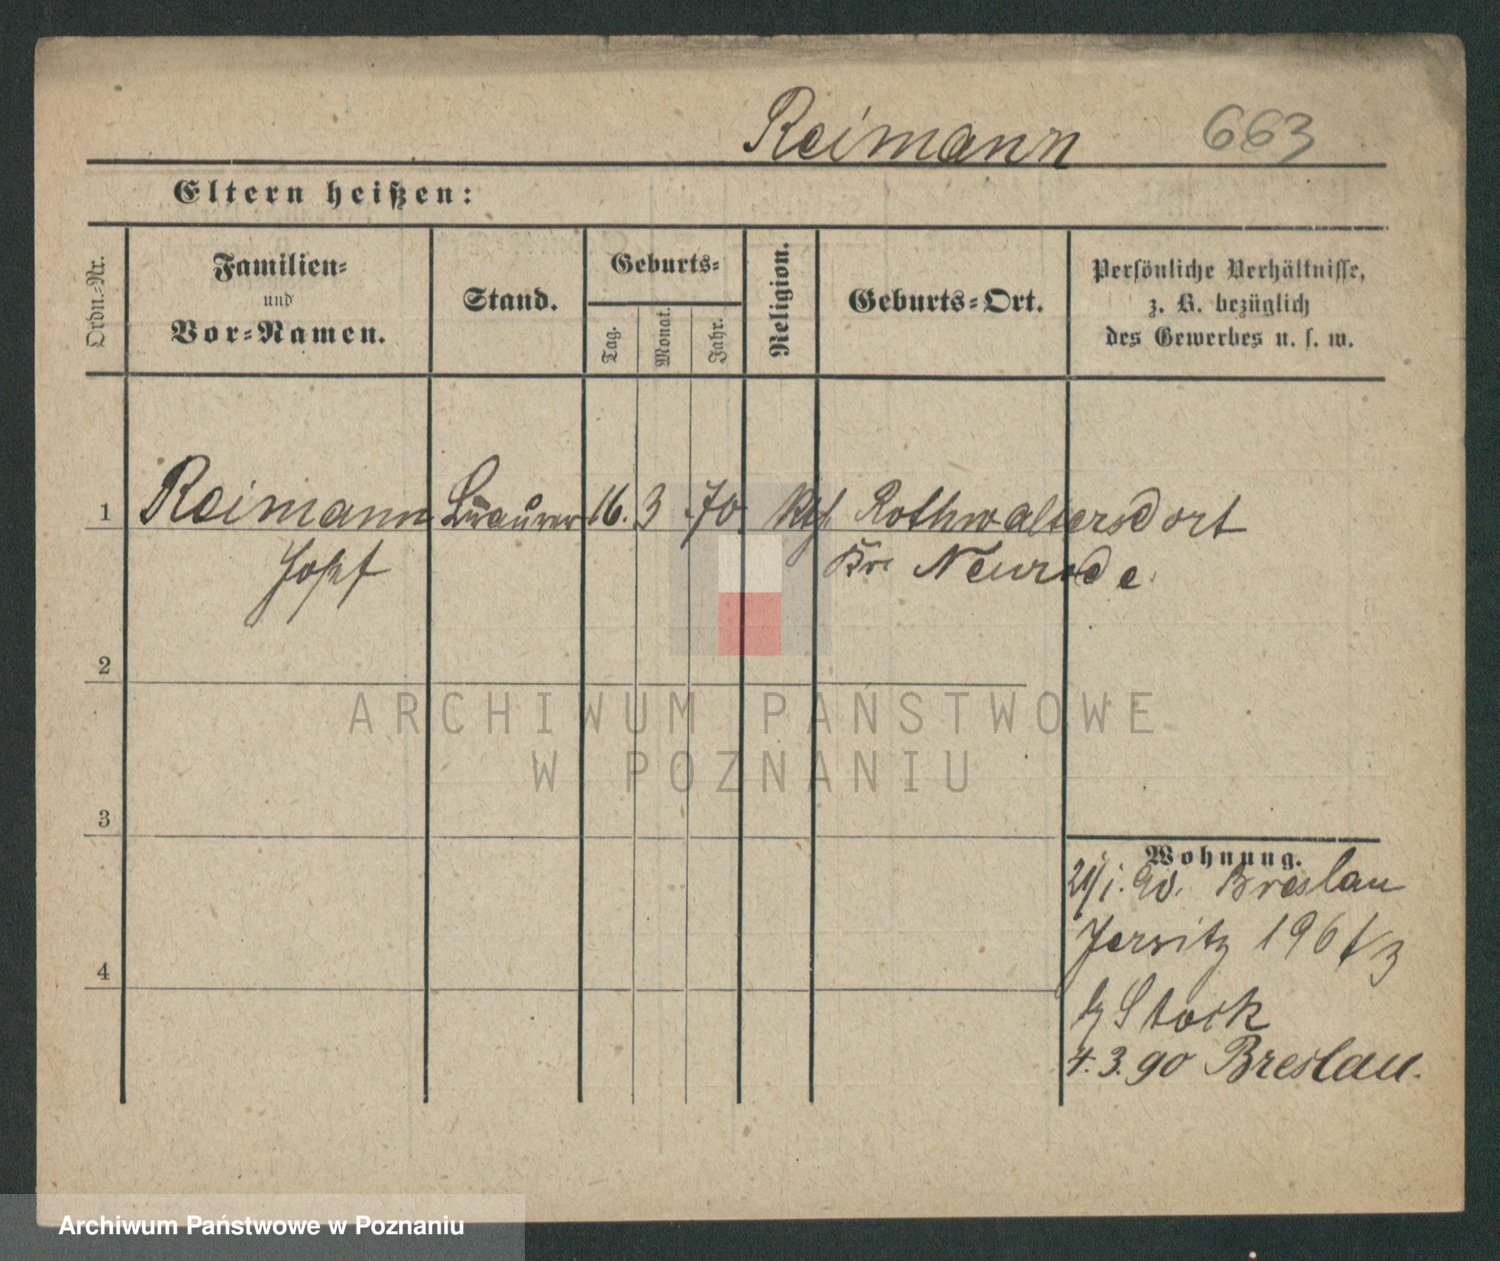 Reimann 663
Eltern heißen:
Ordn.-Nr.
Familien-
und
Vor-Namen.
Stand.
Geburts-
Tag.
Monat.
Jahr.
Religion.
Geburts-Ort.
Persönliche Verhältnisse,
z. B. bezüglich
des Gewerbes u. s. w.
1 Reimann 16. 3 70. kth Rothwaltersdorf
Josef Krs Neurode
2
3
4
Wohnung.
21/1. 90. Breslau
Jersitz 196 f/3
bz Stock
4.3.90 Breslau.
ARCHIWUM PAŃSTWOWE
W POZNANIU
Archiwum Państwowe w Poznaniu